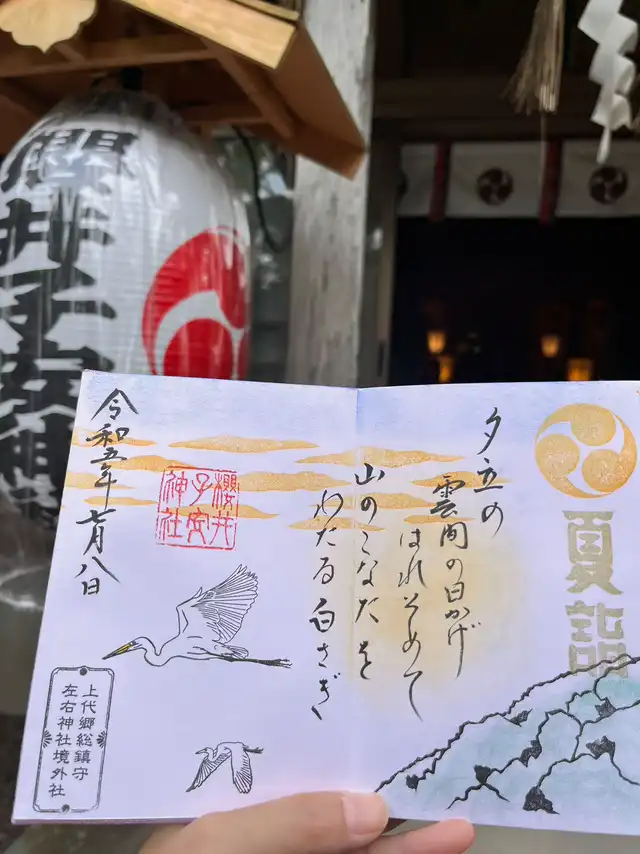 櫻井子安神
夏詣
夕立の
雲間の日かげ
はれそめて
山のこなたを
わたる白さぎ
櫻井
子安
神社
令和五年七月八日
上代郷総鎮守
左右神社境外社